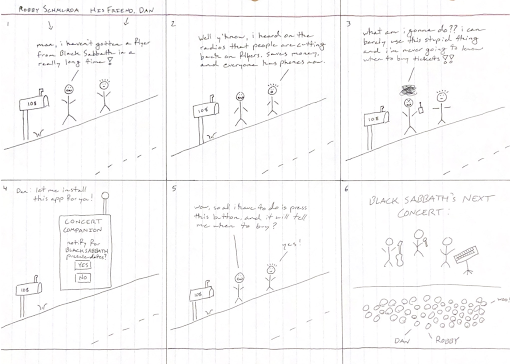 ROBBY SCHMUADA HIS FRIEND, DAN
1
man, i haven't gotten a flyer
from Black Sabbath in a
really long time!!
108
2
Well y'know, i heard on the
radios that people are cutting
back on flyers, saves money,
and everyone has phones now.
108
3
what am i gonna do?? i can
barely use this stupid thing
and i'm never going to know
when to buy tickets!!
108
4
Dan: let me install
this app for you!
CONCERT
COMPANION
notify for
BLACK SABBATH
YES
NO
5
wow, so all i have to do is press
this button, and it will tell
me when to buy?
yes!
108
6
BLACK SABBATH'S NEXT
CONCERT:
DAN
ROBBY